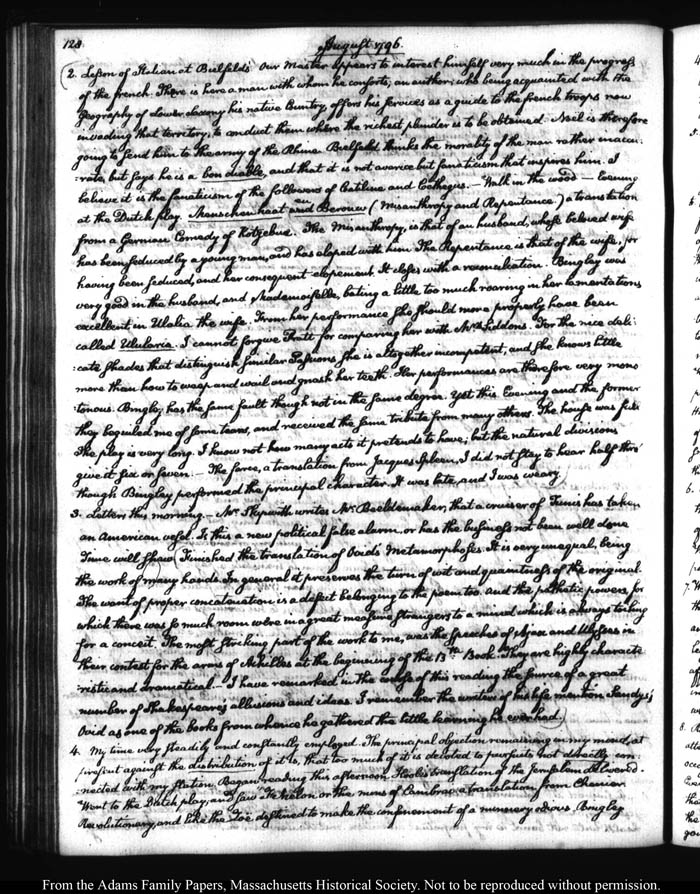 128
August 1796.
2. Lesson of Italian at Bielfelds. Our Master appears to interest himself very much in the progress
of the french. There is here a man with whom he consorts, an author, who being acquainted with the
geography of Lower Saxony his native Country, offers his services as a guide to the french troops now
invading that territory, to conduct them where the richest plunder is to be obtained. Noel is therefore
going to send him to the army of the Rhine. Bielfeld thinks the morality of the man rather inaccu-
:rate, but says he is a bon diable, and that it is not avarice but fanaticism that inspires him. I
believe it is the fanaticism of the followers of Catiline and Cethegus.— Walk in the wood — Evening
at the Dutch play. Menschenhaat en Berouw (Misanthropy and Repentance) a translation
from a German Comedy of Kotzebue. The Misanthropy, is that of an husband, whose beloved wife
has been seduced by a young man, and has eloped with him. The Repentance is that of the wife, for
having been seduced, and her consequent elopement. It closes with a reconciliation. Bingley was
very good in the husband, and Mademoiselle, bating a little too much roaring in her lamentations
excellent in Ulalia the wife. From her performance she should more properly have been
called Ululania. I cannot forgive for comparing her with Mrs. Siddons. For the nice deli-
:cate shades that distinguish similar Passions, she is altogether incompetent, and she knows little
more than how to weep and wail and gnash her teeth. Her performances are therefore very mono
:tonous. Bingley has the same fault though not in the same degree. Yet this Evening and the former
they beguiled me of some tears, and received the same tribute from many others. The house was full
The play is very long. I know not how many acts it pretends to have, but the natural divisions
give it six or seven.— The farce, a translation from Jacques Spleen, I did not stay to hear half thro'
though Bingley performed the principal character. It was late, and I was weary.
3. Letters this morning.— Mr. writes Mr. Beeldemaker, that a cruiser of Tunis has taken
an American vessel. Is this a new political false alarm, or has the business not been well done
Time will shew. Finished the translation of Ovid's Metamorphoses. It is very unequal, being
the work of many hands. In general it preserves the turn of wit and quaintness of the original.
The want of proper concatenation is a defect belonging to the poem too. And the pathetic powers, for
which there was so much room were in a great measure strangers to a mind which is always toiling
for a conceit. The most striking part of the work to me, was the speeches of Ajax and Ulysses in
their contest for the arms of Achilles at the beginning of the 13th. Book. They are highly characte
:ristic and dramatical.— I have remarked in the course of this reading the source of a great
number of Shakespeare's allusions and ideas. I remember the writers of his life mention Sandys's
Ovid as one of the books from whence he gathered the little learning he ever had.
4. My time very steadily and constantly employed. The principal objection remaining in my mind, at
present against the distribution of it is, that too much of it is devoted to pursuits not directly con-
:nected with my station. Began reading this afternoon, Hoole's translation of the Jerusalem Delivered.
Went to the Dutch play, and saw Fenelon, or the nuns of Cambray, a translation from Chenier
Revolutionary, and like the destined to make the confinement of a nunnery odious. Bingley
From the Adams Family Papers, Massachusetts Historical Society. Not to be reproduced without permission.